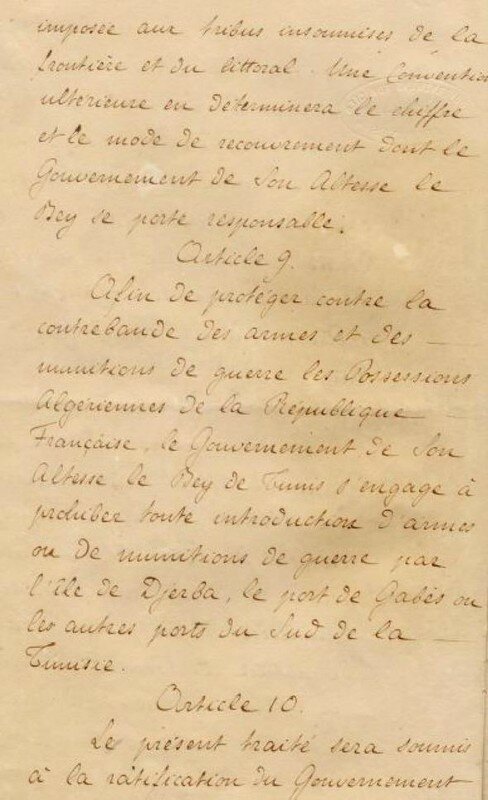 imposée aux tribus insoumises de la
frontière et du littoral. Une Convention
ultérieure en determinera le chiffre
et le mode de recouvrement dont le
Gouvernement de Son Altesse le
Bey se porte responsable.
Article 9.
Afin de protéger contre la
contrebande des armes et des —
munitions de guerre les Possessions
Algériennes de la République
Française, le Gouvernement de Son
Altesse le Bey de Tunis s'engage à
prohiber toute introduction d'armes
ou de munitions de guerre par
l'île de Djerba, le port de Gabès ou
les autres ports du Sud de la —
Tunisie.
Article 10.
Le présent traité sera soumis
à la ratification du Gouvernement